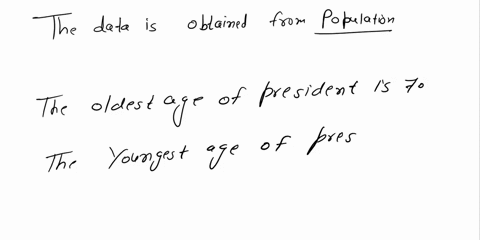 The data is obtained from Population
The oldest age of president is 70
The Youngest age of pres